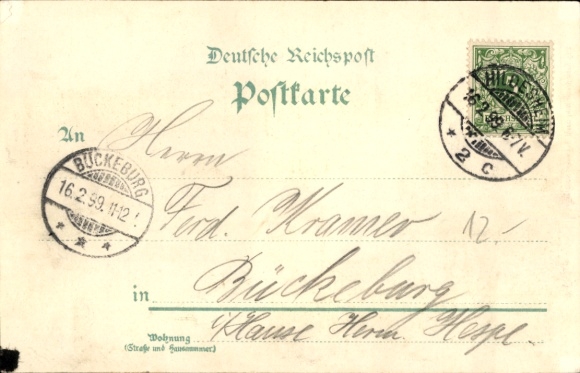 Deutsche Reichspost
Postkarte
HILDESHEIM
16.2.99.6-7V.
* 2 c
An Herrn
BÜCKEBURG
16.2.99.11-12
* * *
Ferd. Kramer 12.-
in Bückeburg
i/Hause Herm. Hespe.
Wohnung
(Straße und Hausnummer)